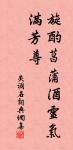 旋酌菖蒲酒靈氣
滿芳尊
吳潛名詞典閱集